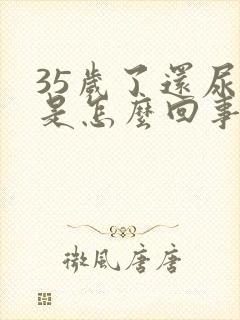 35歲了還尿
是怎麼回事
微風唐唐